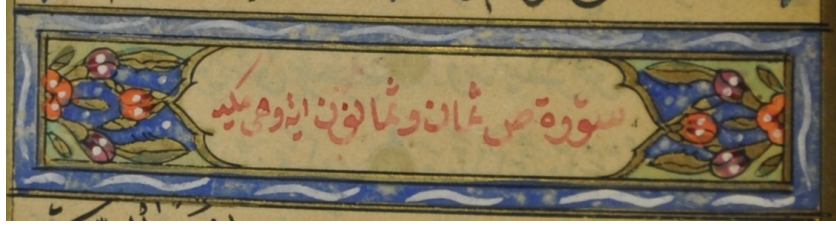 سورة ص ثمان وثمانون اية وهى مكية